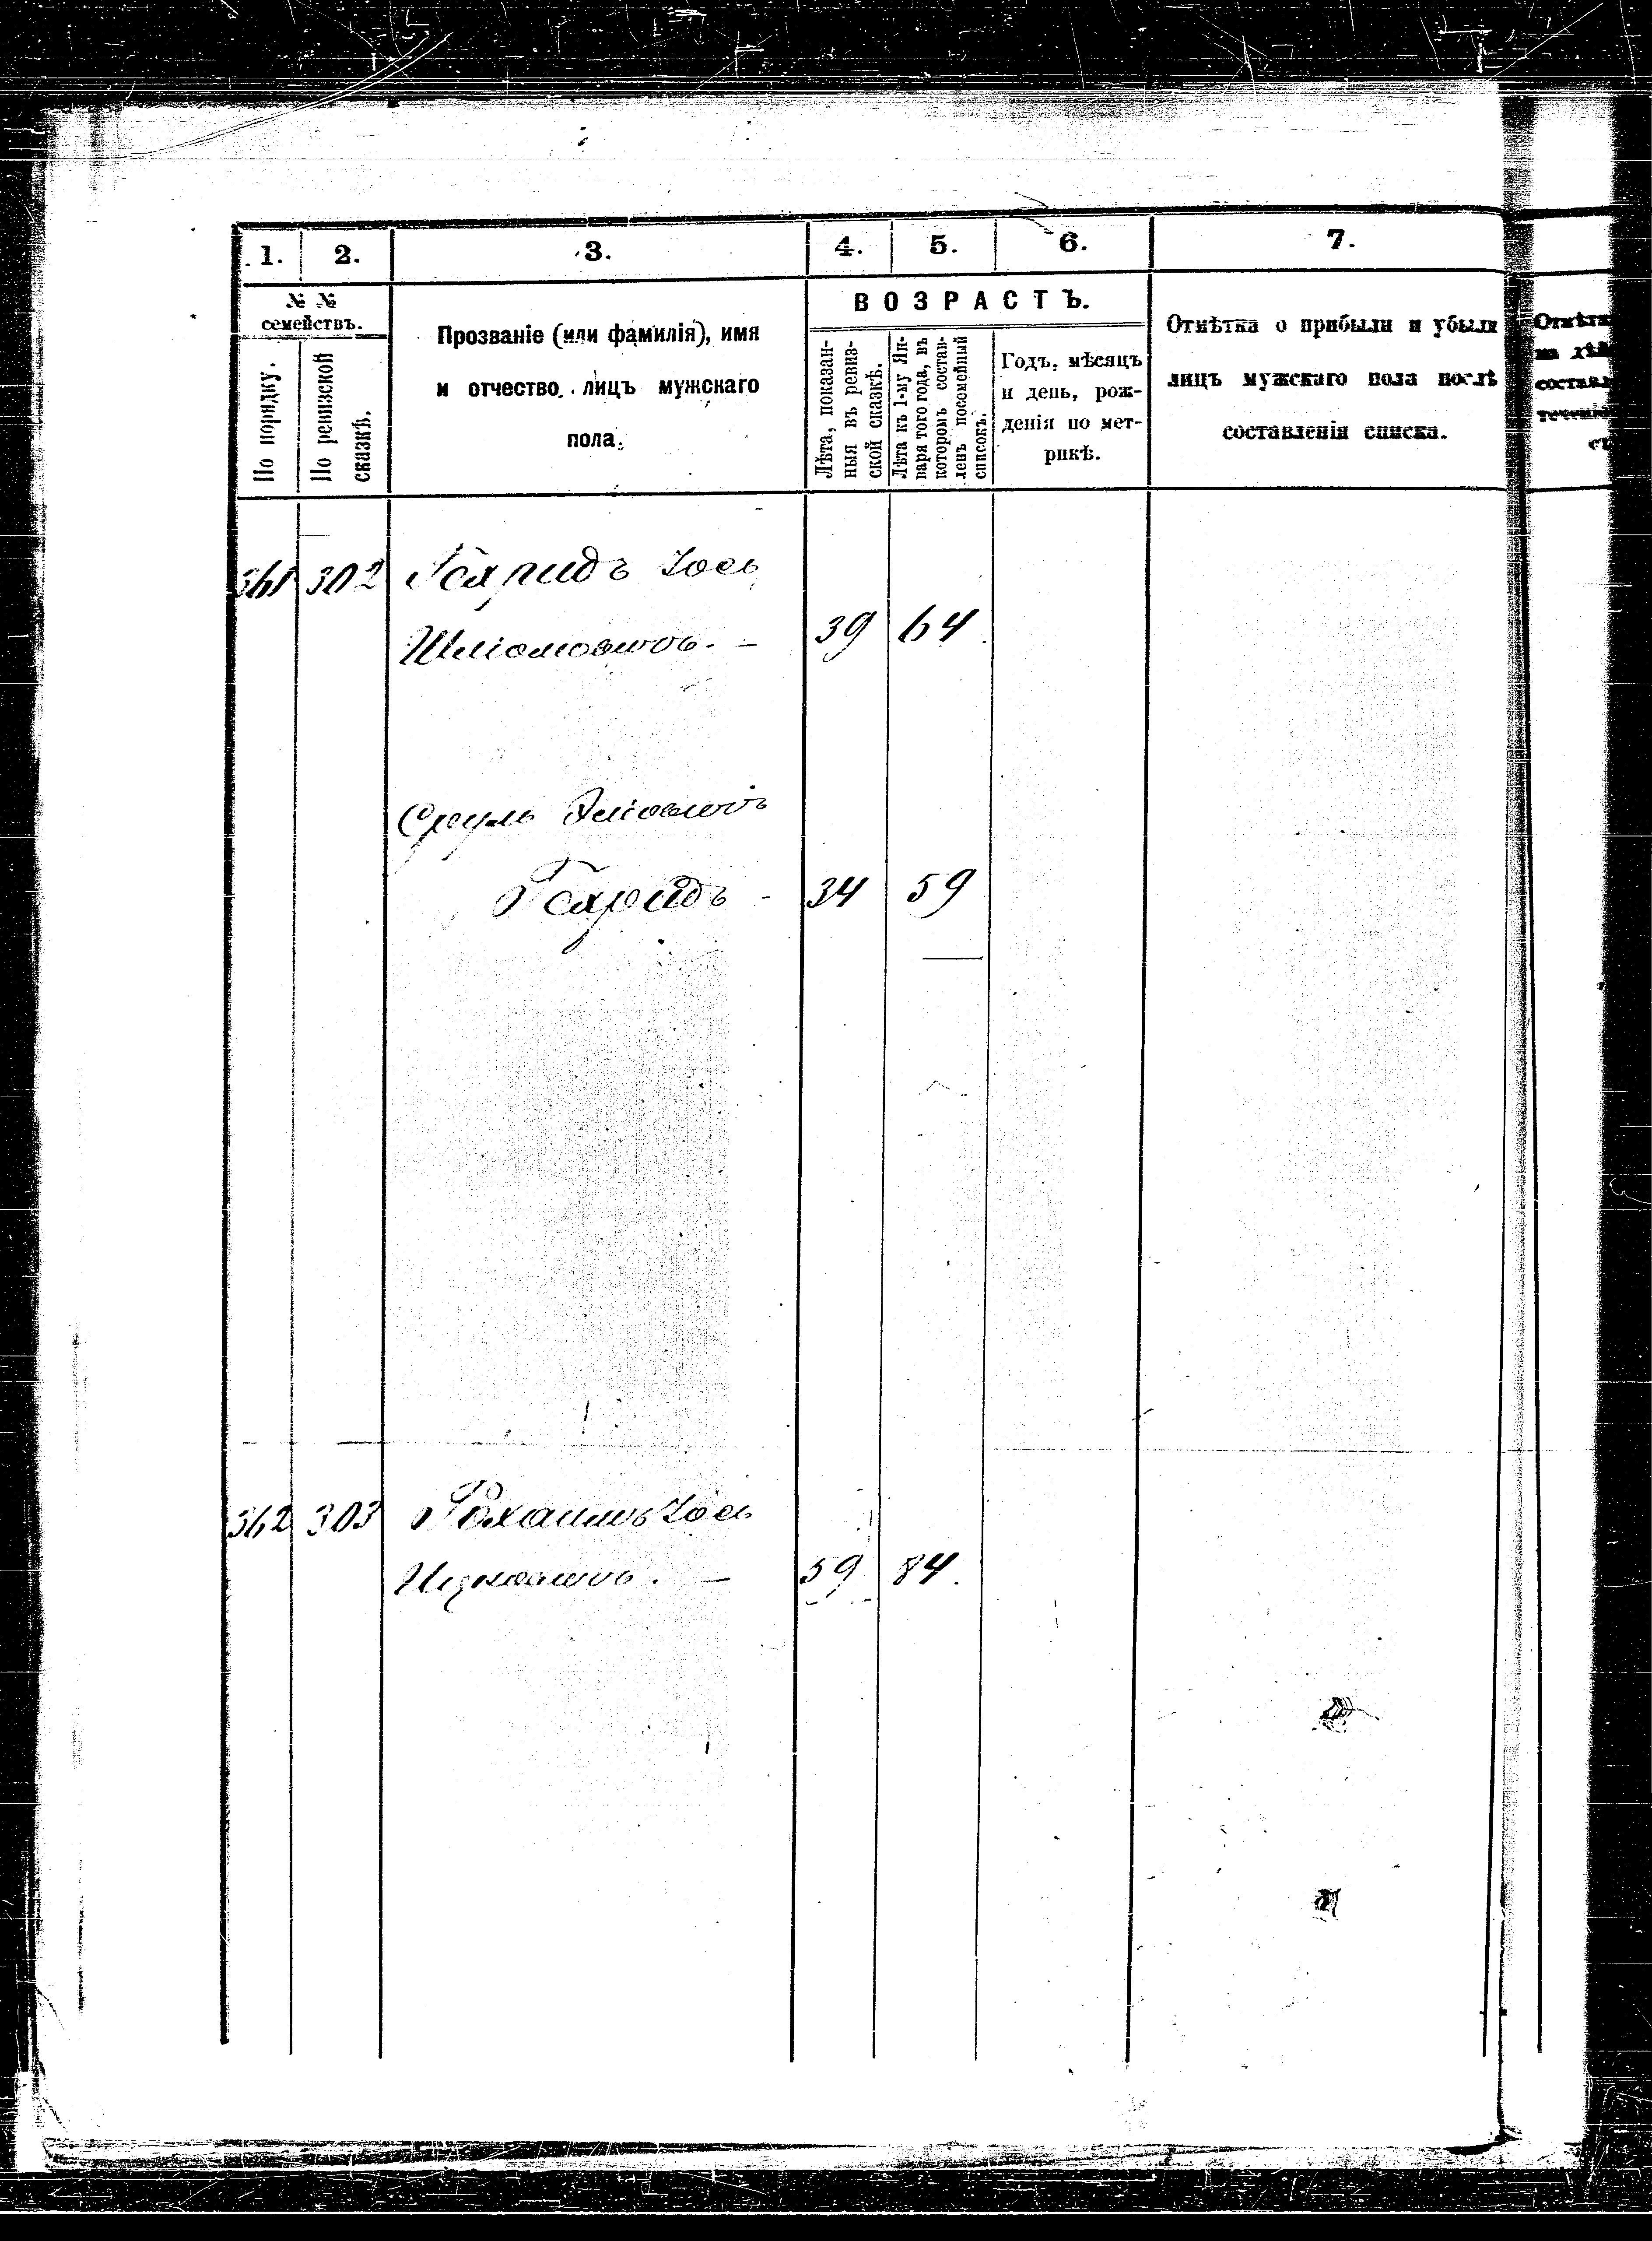 1. 2. 3. 4. 5. 6. 7.
№ №
семействъ.
По порядку.
По ревизской
сказкѣ.
Прозваніе (или фамилія), имя
и отчество лицъ мужскаго
пола.
ВОЗРАСТЪ.
Лѣта, показан-
ныя въ ревиз-
ской сказкѣ.
Лѣта къ 1-му Ян-
варя того года, въ
которомъ состав-
ленъ посемейный
списокъ.
Годъ, мѣсяцъ
и день, рож-
денія по мет-
рикѣ.
Отмѣтка о прибыли и убыли
лицъ мужскаго пола послѣ
составленія списка.
361 302 Іось
Шліомовичъ. — 39 64
Сруль
34 59
362 303 Іось
59 84.